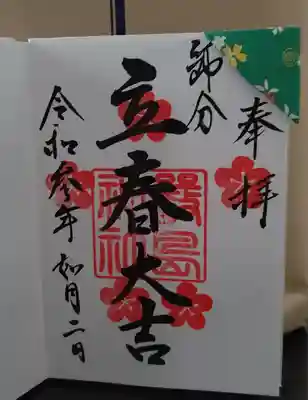 奉拝
節分
立春大吉
厳島神社
令和参年如月二日